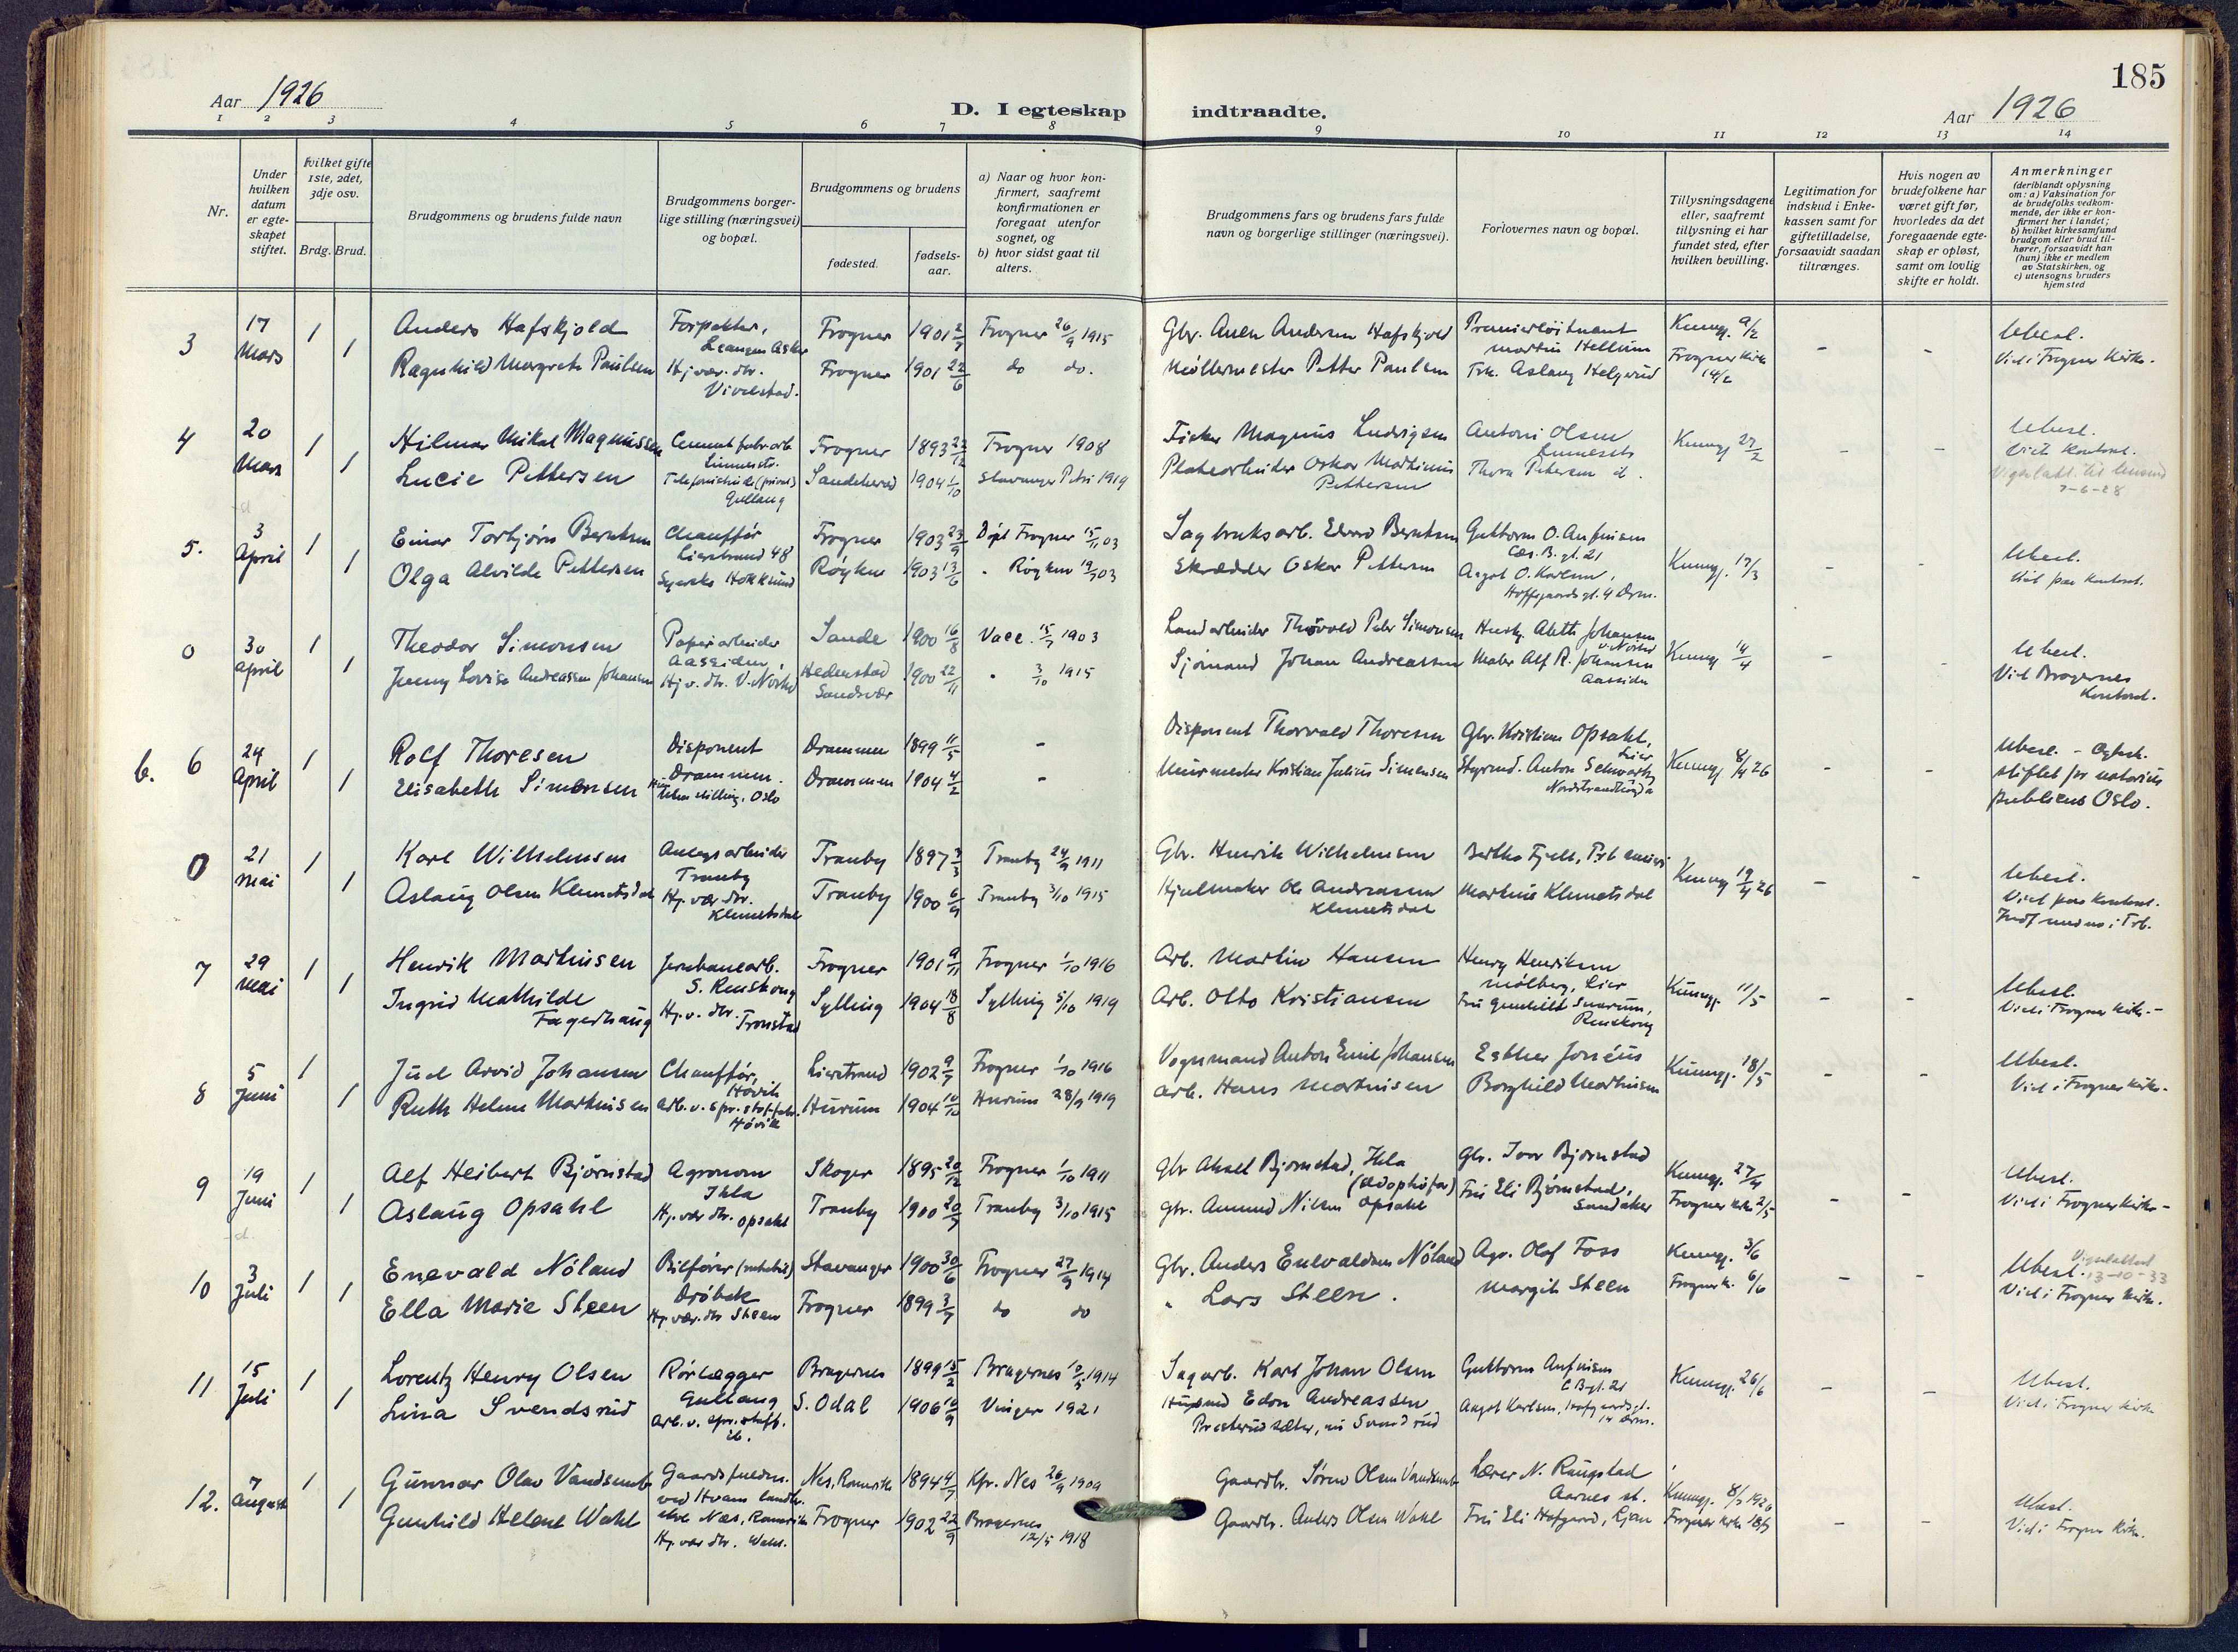 185
Aar 1926
D. I egteskap indtraadte.
Aar 1926
1 2 3 4 5 6 7 8 9 10 11 12 13 14
Nr.
Under hvilken datum er egte- skapet stiftet.
hvilket gifte 1ste, 2det, 3dje osv.
Brdg. Brud.
Brudgommens og brudens fulde navn
Brudgommens borger- lige stilling (næringsvei) og bopæl.
Brudgommens og brudens
fødested.
fødsels- aar.
a) Naar og hvor kon- firmert, saafremt konfirmationen er foregaat utenfor sognet, og
b) hvor sidst gaat til alters.
Brudgommens fars og brudens fars fulde navn og borgerlige stillinger (næringsvei).
Forlovernes navn og bopæl.
Tillysningsdagene eller, saafremt tillysning ei har fundet sted, efter hvilken bevilling.
Legitimation for indskud i Enke- kassen samt for giftetilladelse, forsaavidt saadan tiltrænges.
Hvis nogen av brudefolkene har været gift før, hvorledes da det foregaaende egte- skap er opløst, samt om lovlig skifte er holdt.
Anmerkninger (deriblandt oplysning om: a) Vaksination for de brudefolks vedkom- mende, der ikke er kon- firmert her i landet; b) hvilket kirkesamfund brudgom eller brud til- hører, forsaavidt han (hun) ikke er medlem av Statskirken, og c) utensogns bruders hjemsted
3 17 Mars 1 Anders Hafskjold Forpakter, Leangen Asker Frogner 1901 2/7 Frogner 26/9 1915 Gbr. Anders Hafskjold Premierløitnant Martin Hellum Kunng. 9/2 - - Ubesl.
1 Ragnhild Margrete Paulsen Hj. vær. dtr. Vivelstad. Frogner 1901 22/6 do do. Møllermester Petter Paulsen Frk. Aslaug Helgerud Frogner Kirke 14/2 Viet i Frogner Kirke.
4 20 Mars 1 Hilmar Mikal Magnussen Cementfabr. arb. Linnesstr. Frogner 1893 22/12 Frogner 1908 Fisker Magnus Ludvigsen Antoni Olsen Linnesstr. Kunng 27/2 - - Ubesl.
1 Lucie Pettersen Gullaug Sandeherred 1904 1/10 Stavanger Petri 1919 Platearbeider Oskar Martinius Pettersen Thora Petersen Viet Kontoret.
7-6-28
5. 3 April 1 Einar Torbjørn Berntsen Chauffør Lierstrand 48 Frogner 1903 23/9 Døpt Frogner 15/11 03 Sagbruksarb. Edvard Berntsen Guttorm O. Anfinsen Cas. B. gt. 21 Kunng. 17/3 - - Ubesl.
1 Olga Alvilde Pettersen Syerske Hokksund Røyken 1903 13/6 " Røyken 19/7 03 Skrædder Oskar Pettersen Aagot O. Karlsen, Hoffgaards gt. 4 Drm. Viet paa Kontoret.
0 30 April 1 Theodor Simonsen Papirarbeider Aassiden Sande 1900 16/8 Vacc. 15/7 1903 Landarbeider Thorvald Peder Simonsen Husbg. Aleth Johansen v. Norhd Kunng 14/4 - - Ubesl.
1 Jenny Lovise Andreassen Johansen Hj. v. dtr. V. Norhd Hedenstad Sandsvær 1900 22/11 " 3/10 1915 Sjømand Johan Andreassen Maler Alf R. Johansen Aassiden Viet Bragernes Kontoret.
b. 6 24 April 1 Rolf Thoresen Disponent Drammen. Drammen 1899 11/5 - Disponent Thorvald Thoresen Gbr. Kristian Opsahl, Lier Kunng. 8/4 26 - - Ubesl. - Egtesk.
1 Elisabeth Simensen Uten stilling, Oslo Drammen 1904 4/2 - Murmester Kristian Julius Simensen Styrmd. Anton Schwartz stiftet for notarius publicus Oslo.
0 21 Mai 1 Karl Wilhelmsen Anlegsarbeider Tranby Tranby 1897 3/3 Tranby 24/9 1911 Gbr. Henrik Wilhelmsen Bertha Fjell, Kunng 19/4 26 - - Ubesl.
1 Aslaug Olsen Klemetsdal Hj. vær. dtr. Klemetsdal Tranby 1900 6/9 Tranby 3/10 1915 Hjulmaker Ole Andreassen Klemetsdal Markus Klemetsdal Viet paa Kontoret.
7 29 Mai 1 Henrik Martinsen Jernbanearb. S. Renskoug Frogner 1901 9/11 Frogner 1/10 1916 Arb. Martin Hansen Henry Henriksen Mølberg, Lier Kunng. 11/5 - - Ubesl.
1 Ingrid Mathilde Fagerhaug Hj. v. dtr. Tronstad Sylling 1904 18/8 Sylling 5/10 1919 Arb. Otto Kristiansen Fru Gunhild Snarum, Renskoug Viet i Frogner Kirke. -
8 5 Juni 1 Juel Arvid Johansen Chauffør, Høvik Lierstrand 1902 9/7 Frogner 1/10 1916 Vognmand Anton Emil Johansen Esther Jonéus Kunng. 18/5 - - Ubesl.
1 Ruth Helene Martinisen Arb. v. spr. stoffabr. Høvik Hurum 1904 10/10 Hurum 28/9 1919 Arb. Hans Martinisen Borghild Martinisen Viet i Frogner Kirke.
9 19 Juni 1 Alf Heibert Bjørnstad Agronom Ihla Skoger 1895 20/12 Frogner 1/10 1911 Gbr Aksel Bjørnstad, Ihla (adoptivfar) Gbr. Ivar Bjørnstad Kunng. 27/4 - - Ubesl.
1 Aslaug Opsahl Hj. vær dtr. Opsahl Tranby 1900 20/7 Tranby 3/10 1915 Gbr. Amund Nilsen Opsahl Fru Eli Bjørnstad, Sandaker Frogner Kirke 2/5 Viet i Frogner Kirke -
10 3 Juli 1 Enevald Nöland Bilfører (rutebil) Drøbak Stavanger 1900 30/6 Frogner 27/9 1914 Gbr. Anders Enevaldsen Nöland Agr. Olaf Foss Kunng. 3/6 - - Ubesl. 13-10-33
1 Ella Marie Steen Hj. vær. dtr Steen Frogner 1899 3/7 do do " Lars Steen. Margit Steen Frogner k. 6/6 Viet i Frogner Kirke.
11 15 Juli 1 Lorentz Henry Olsen Rørlægger Gullaug Bragernes 1899 15/2 Bragernes 10/5 1914 Sagarb. Karl Johan Olsen Guttorm Anfinsen C B. gt. 21 Kunng. 26/6 - - Ubesl.
1 Lina Svendsrud Arb. v. spr. stoff. S. Odal 1906 10/9 Vinger 1921 Husmd Edon Andreassen Præsterudsæter, nu Svendsrud Aagot Karlsen, Hofgaards gt. 14 Drm. Viet i Frogner Kirke
12. 7 August 1 Gunnar Olav Vandsemb Gaardsfuldm. ved Hvam landb. skole Næs, Romerike Nes, Romerike 1894 4/7 Kfr. Nes 26/9 1909 Gaardbr. Søren Olsen Vandsemb Lærer N. Raugstad Aarnes st. Kunng. 8/7 1926 - - Ubesl.
1 Gunhild Helene Wahl Hj. vær dtr. Wahl. Frogner 1902 22/9 Bragernes 12/5 1918 Gaardbr. Anders Olsen Wahl Fru Eli Hofgaard, Kjan Frogner Kirke 18/7 Viet i Frogner Kirke.